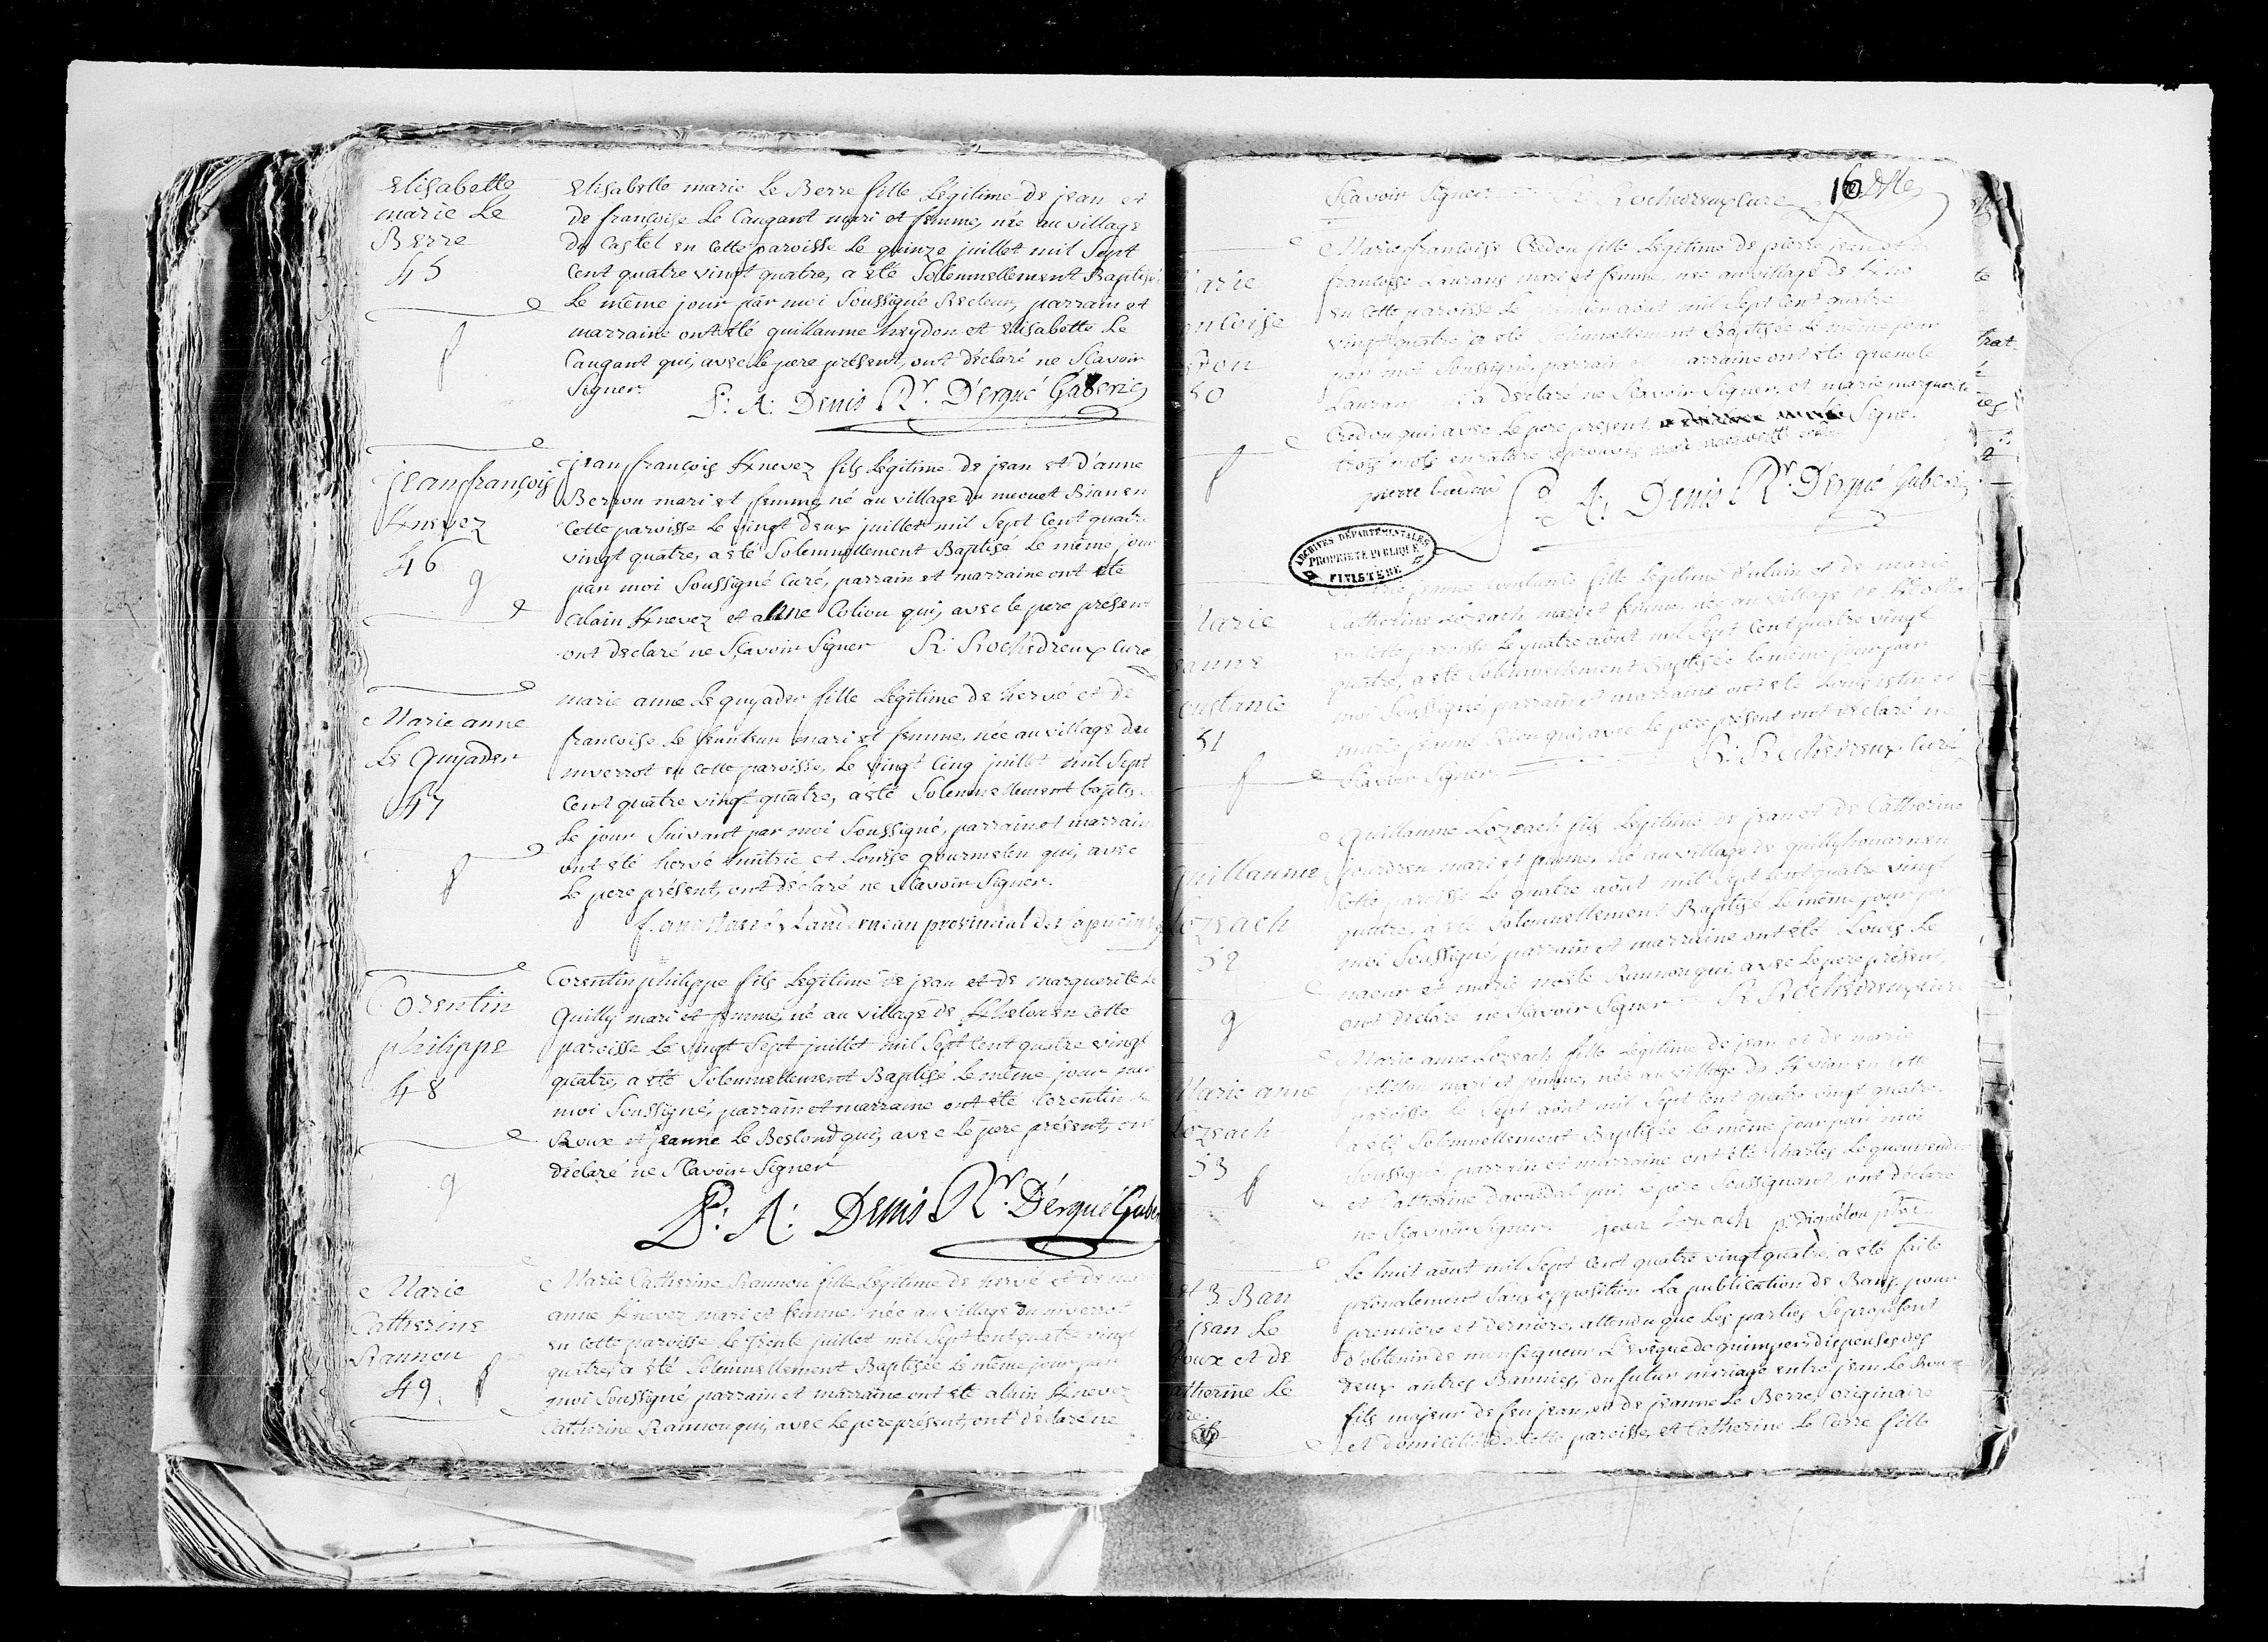 Elisabette
marie Le
Berre
45
f
Elisabette marie Le Berre fille Légitime de jean et
de françoise Le Caugant mari et femme, née au village
du Castel en Cette paroisse Le quinze juillet mil Sept
Cent quatre vingt quatre, a été Solemnellement Baptisé
Le même jour par moi Soussigné Recteur, parrain et
marraine ont été guillaume heydon et Elisabette Le
Caugant qui, avec Le pere présent, ont déclaré ne Sçavoir
Signer. P: A: Denis Rr. D'ergué Gaberic
jean françois
Knevez
46
g
jean françois Knevez fils Légitime de jean et d'anne
Berrou mari et femme, né au village du meouet Bian en
Cette paroisse Le vingt deux juillet mil Sept Cent quatre
vingt quatre, a été Solemnellement Baptisé Le même jour
par moi Soussigné Curé, parrain et marraine ont été
alain Knevez et anne Coliou qui, avec le pere présent
ont declaré ne Sçavoir Signer R: Rochedreux Curé
Marie anne
Le Guyader
47
f
marie anne Le guyader fille Légitime de hervé et de
françoise Le mari et femme, née au village du
niverrot en Cette paroisse, Le vingt Cinq juillet mil Sept
Cent quatre vingt quatre, a été Solemnellement baptis
Le jour Suivant par moi Soussigné, parrain et marrain
ont été hervé huitric et Louise gourmelen qui, avec
Le pere présent, ont déclaré ne Sçavoir Signer.
f. Landerneau provincial des Capucins
Corentin
philippe
48
g
Corentin philippe fils Légitime de jean et de marguerite Le
Quilly mari et femme, né au village de Khelou en Cette
paroisse Le vingt Sept juillet mil Sept Cent quatre vingt
quatre, a été Solemnellement Baptisé Le même jour par
moi Soussigné, parrain et marraine ont été Corentin Le
Roux et jeanne Le Beslond qui, avec Le pere présent, ont
déclaré ne Sçavoir Signer
P: A: Denis Rr. D'ergué Gaber
Marie
Catherine
Rannou
49. f
Marie Catherine Rannou fille Légitime de hervé et de ma
anne Knevez mari et femme, née au village du niverrot
en Cette paroisse Le trente juillet mil Sept Cent quatre vingt
quatre, a été Solemnellement Baptisée Le même jour par
moi Soussigné parrain et marraine ont été alain Knevez
Catherine Rannou qui, avec Le pere présent, ont déclaré ne
16
Sçavoir Signer. R. Rochedreux Curé
arie
ancoise
edou
50
f
Marie françoise Credou fille Légitime de pierre jean et de
françoise Lauranz mari et femme, née au village de
en Cette paroisse Le premier aout mil Sept Cent quatre
vingt quatre, a été Solemnellement Baptisée Le même jour
par moi Soussigné, parrain arraine ont été guenolé
Lauran a déclaré ne Sçavoir Signer, et marie marguerite
Credou qui, avec Le pere présent, Signe.
trois mots en rature réprouvés marie marguerite credou
pierre P: A: Denis Rr. D'ergué Gaberic
ARCHIVES DÉPARTEMENTALES
PROPRIETÉ PUBLIQUE
FINISTÈRE
Marie
anne
onstance
51
f
jeanne Constance fille Légitime d'alain et de marie
Catherine Lozeach mari et femme, née au village de
en Cette paroisse Le quatre aout mil Sept Cent quatre vingt
quatre, a été Solemnellement Baptisée Le même jour par
moi Soussigné, parrain et marraine ont été Louis et
marie jeanne Riou qui, avec Le pere présent ont déclaré ne
Sçavoir Signer. R: Rochedreux Curé
guillaume
Lozeach
52
g
guillaume Lozeach fils Légitime de jean et de Catherine
jourdren mari et femme, né au village de quillyhouarn en
Cette paroisse Le quatre aout mil Sept Cent quatre vingt
quatre, a été Solemnellement Baptisé Le même jour par
moi Soussigné, parrain et marraine ont été Louis Le
naour et marie noële Rannou qui, avec Le pere présent,
ont déclaré ne Sçavoir Signer R Rochedreux Curé
Marie anne
Lozeach
53 f
Marie anne Lozeach fille Légitime de jean et de marie
petillon mari et femme, née au village de Kvian en Cette
paroisse, Le Sept aout mil Sept Cent quatre vingt quatre.
a été Solemnellement Baptisée Le même jour par moi
Soussigné, parrain et marraine ont été Charles Le
et Catherine qui, Le pere Soussignant, ont déclaré
ne Sçavoir Signer. jean Lozeach p. diquélou ptre
et 3. Ban
jean Le
Roux et de
atherine Le
orre
Le huit aout mil Sept Cent quatre vingt quatre, a été faite
prônalement Sans opposition La publication de Bans, pour
premiere et derniere, attendu que Les parties Se proposent
d'obtenir de monseigneur L'evêque de quimper dispenses des
deux autres Bannies, du futur mariage entre jean Le Roux
fils majeur de feu jean, et de jeanne Le Berre, originaire
et domicilié de Cette paroisse, et Catherine Le Corre fille